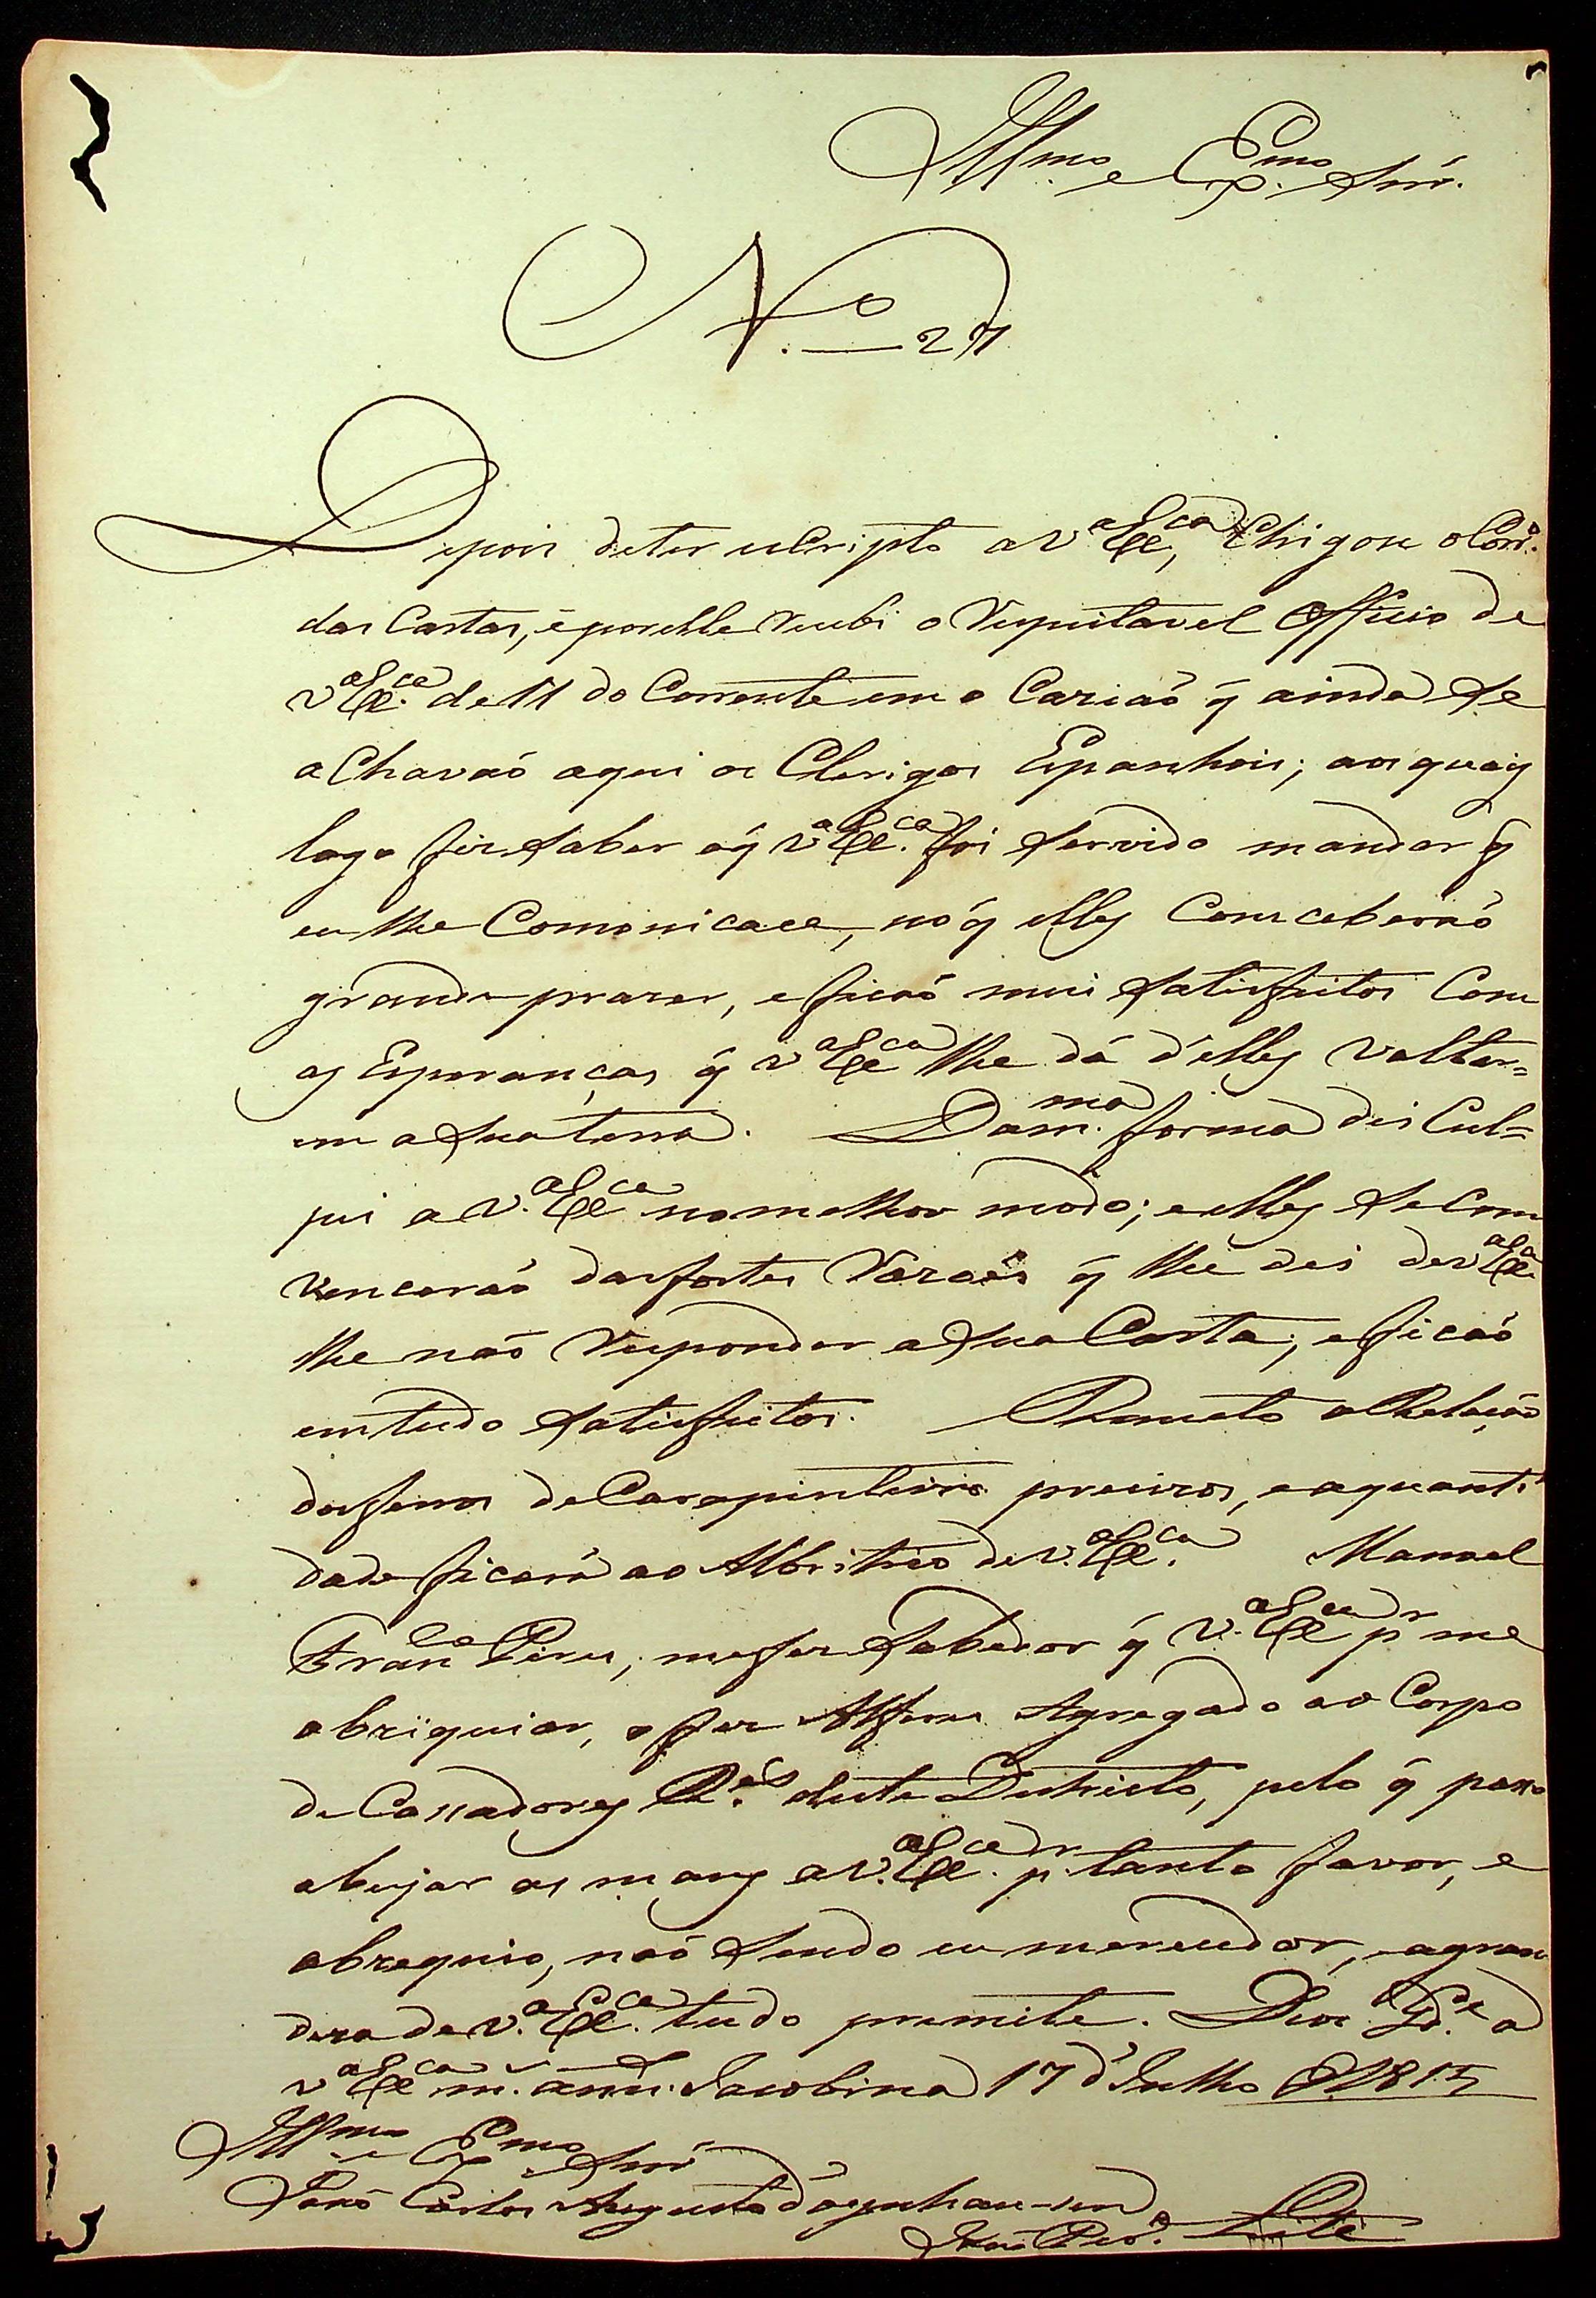 Illmo. e Exmo. Snr.
N.º — 27
Depois deter escripto a V.ª Ex.ca, Chigou o Corr.º
das Cartas, e por elle recebi o Respeitavel Officio de
V.ª Ex.ca de 11 do Corrente em o q̃ ainda Se
a Chavaõ aqui os Clerigos Espanhois; aos quais
logo fis Saber o q̃ V.ª Ex.ca foi Servido mandar q̃
eu lhe Comonicace, no q̃ elles Comceberaõ
grande prazer, e ficaõ mui Satisfeitos Com
as Esperanças q̃ V.ª Ex.ca lhe dá d'elles Voltar=
em a Sua terra. Da m.ma forma disCul=
pei a V.ª Ex.ca no melhor modo; e elles Se Com
venceraõ das fortes Razois q̃ lhe dei de V.ª Ex.ca
lhe naõ Responder a Sua Carta; e ficaõ
em tudo Satisfeitos. Remeto a Relaçaõ
dos ferros de Carapinteiro precizos, e a quanti
dade ficará ao Albitrio de V.ª Ex.ca. Manoel
Fran.co Pires, me fes Sabedor q̃ V.ª Ex.ca p.r me
obziquiar, o fes Alferes Agregado ao Corpo
de Cassadores R.es deste Destricto, pelo q̃ passo
a beijar as mans a V.ª Ex.ca p.r tanto favor, e
obzequio, naõ Sendo eu merecedor, e a gran
deza de V.ª Ex.ca tudo premite. Deos G.de a
V.ª Ex.ca m. ann. Jacobina 17 d'Julho d'1815
Illmo. e Exmo. Snr.
Joaõ Carlos Augusto d'Oeynhausen
Joaõ Per.ª Leite